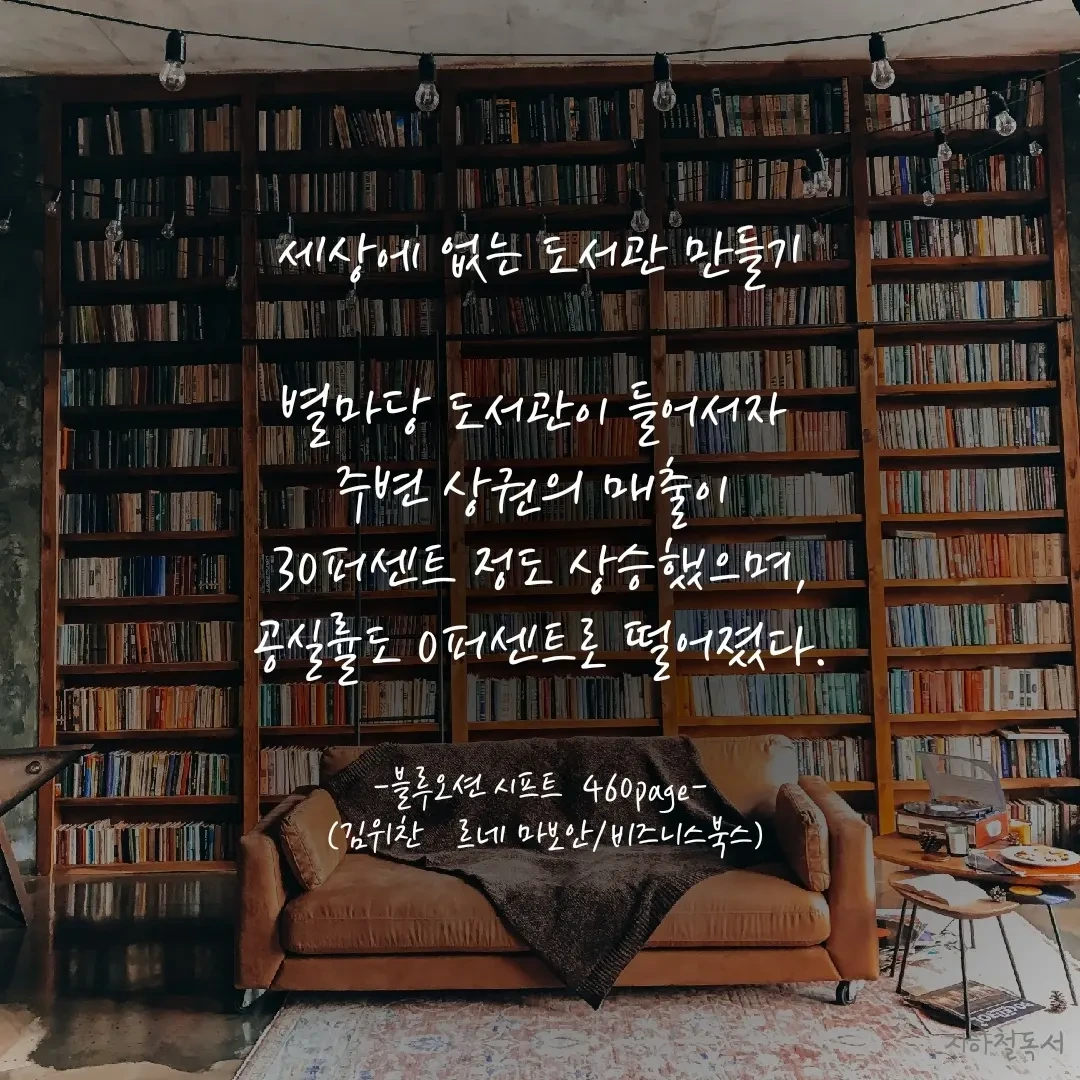 세상에 없는 도서관 만들기
별마당 도서관이 들어서자
주변 상권의 매출이
30퍼센트 정도 상승했으며,
공실률도 0퍼센트로 떨어졌다.
-블루오션 시프트 460page-
(김위찬 르네 마보안/비즈니스북스)
지하철독서